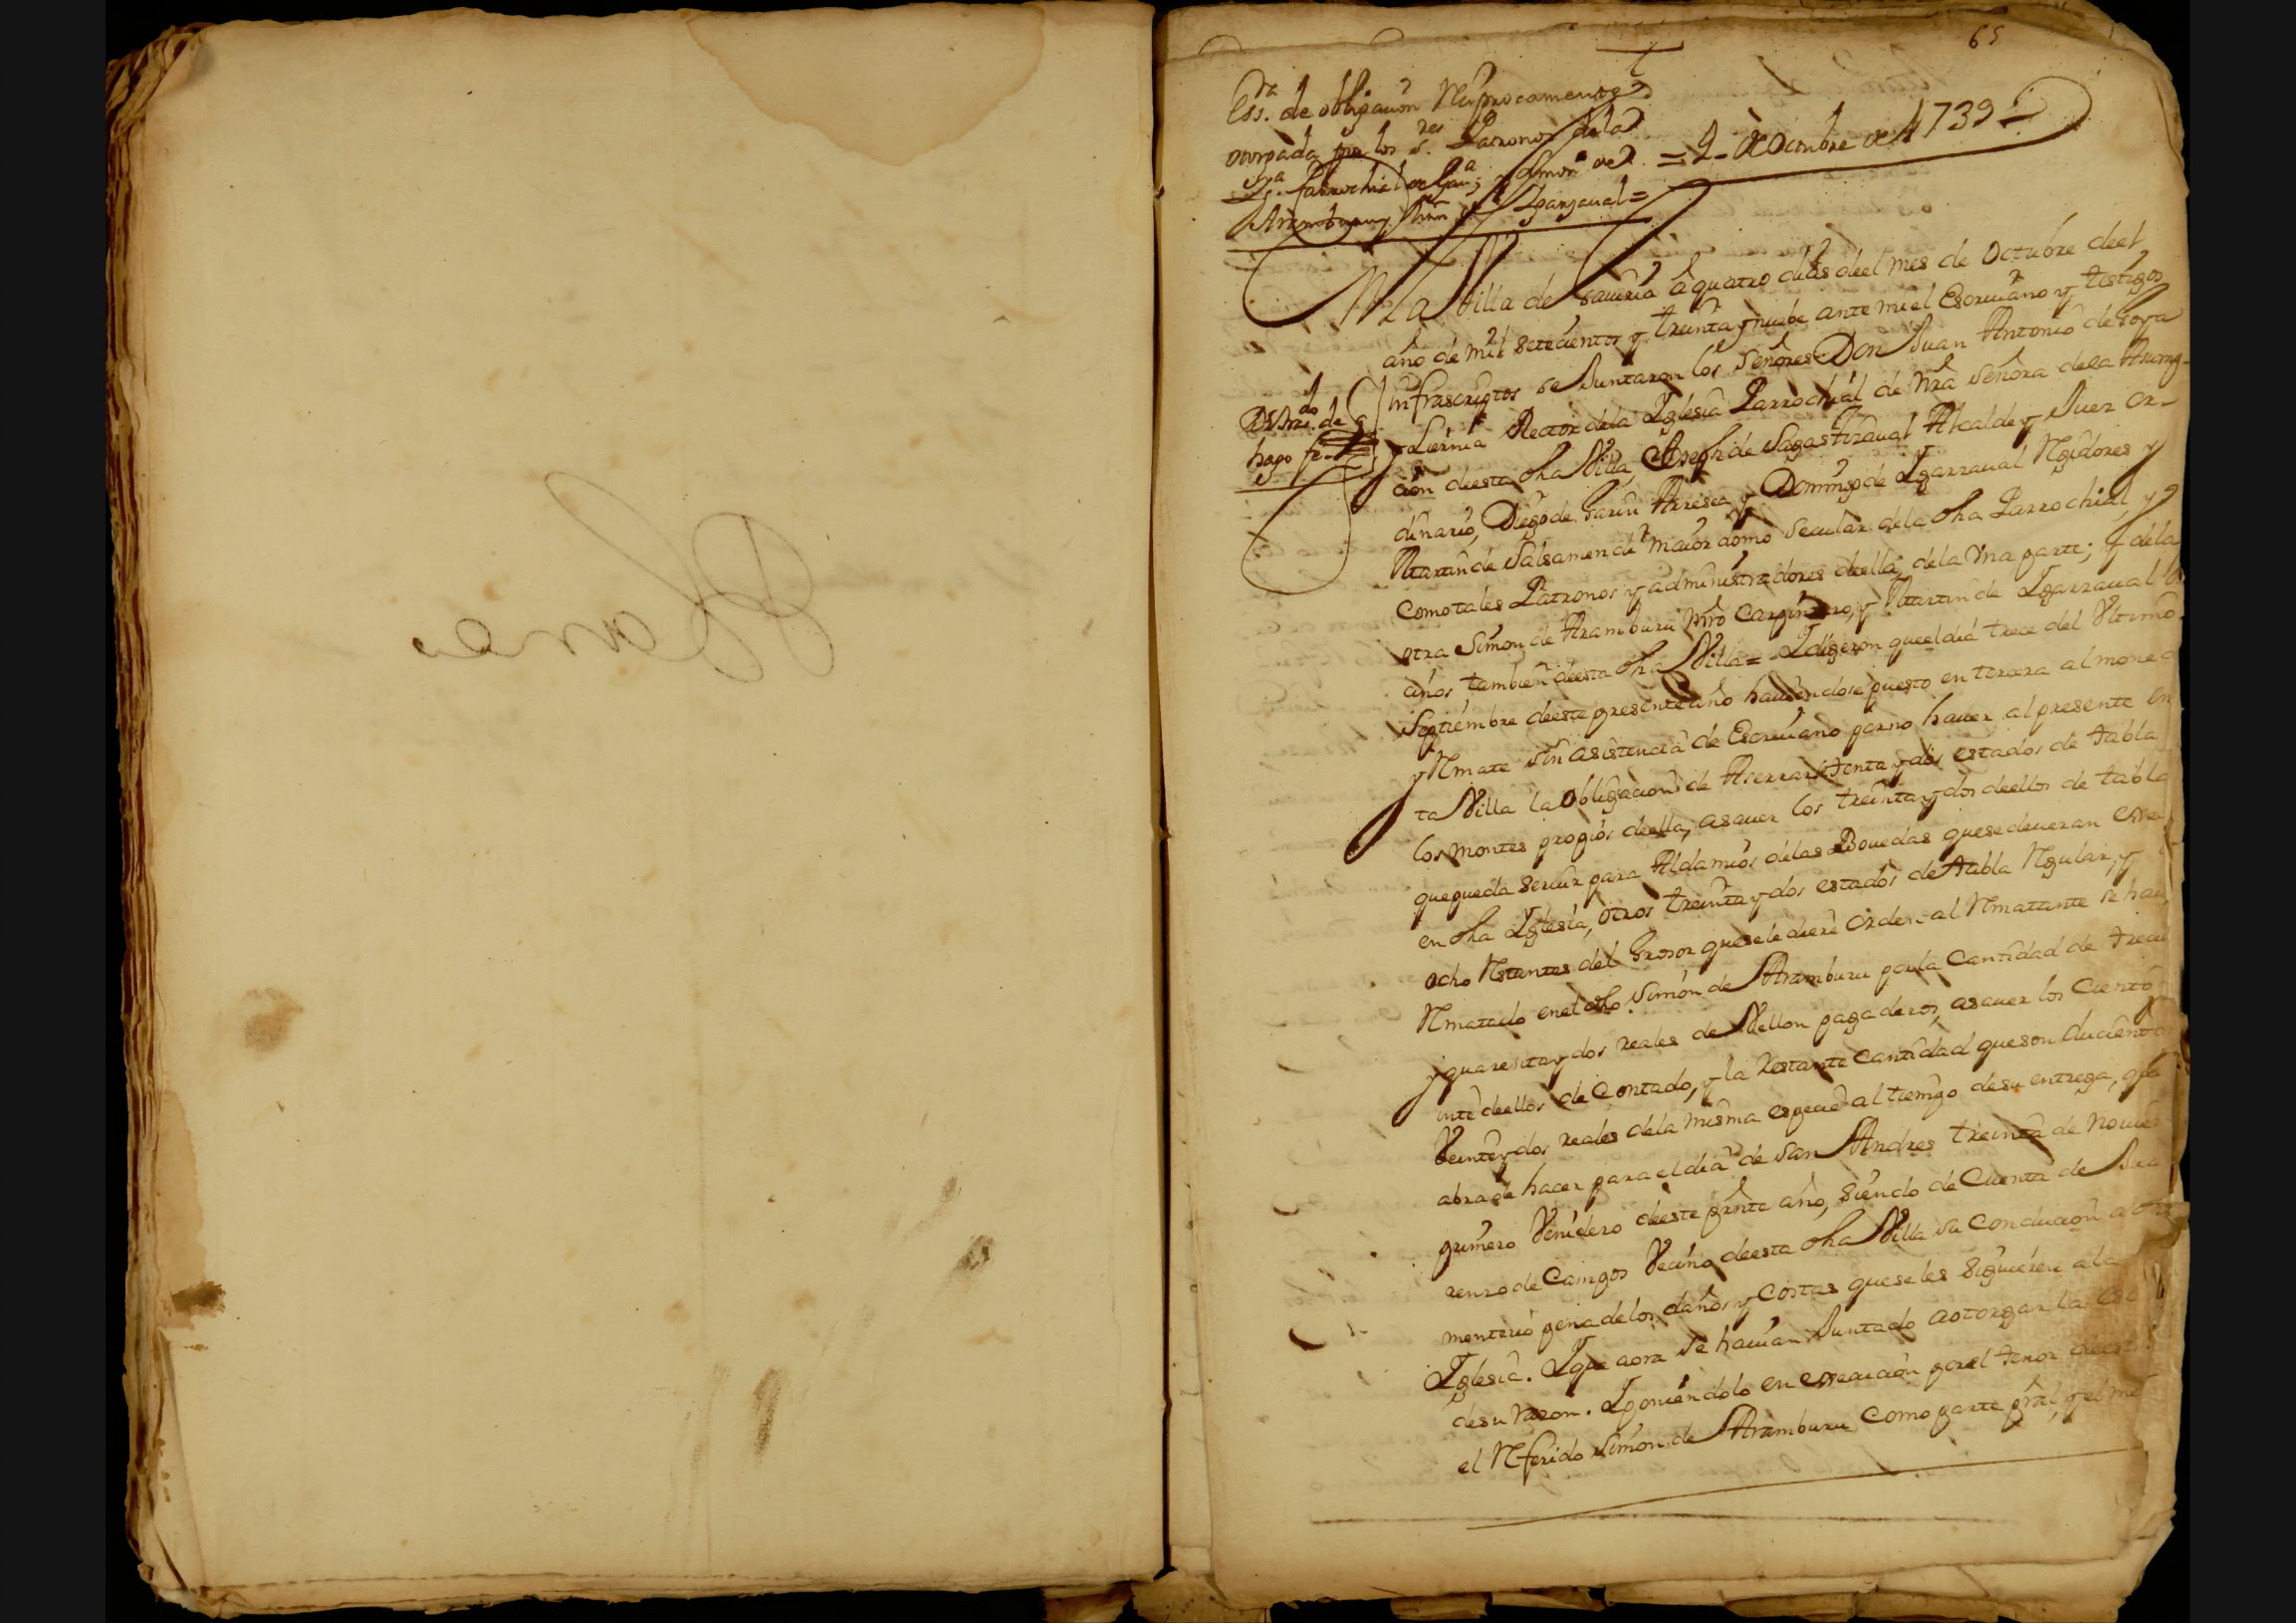 65
Ess.ra de obligacion Reciprocamente
otorgada por los s.res Patronos dela
Ig.a Parrochial de Gav.a y Simon de
Aramburu y Mrn de Ygarzaual =
= 4 - de Octubre de 1739 =
En la Villa de Gauiria à quatro dias deel mes de Octubre deel
año de mil setecientos y treinta y nuebe ante mi el Escriuano y testigos
infrascriptos se Juntaron los señores Don Juan Antonio de
y Liernia Rector dela Yglesia Parrochial de Nra Señora dela Asump-
cion deesta dha Villa, Joseph de Sagastizaual Alcalde y Juez or-
dinario, Diego de Garin Arresea y Domingo de Ygarzaual Regidores y
Martin de Salsamendi maiordomo secular dela dha Parrochial, y
como tales Patronos y administradores deella, dela Vna parte; y dela
otra Simon de Aramburu Mro Carpintero, y Martin de Ygarzaual
tambien deesta dha Villa = Y digeron que el dia trece del Vltimo
Septiembre deeste presente año hauiendose puesto en tercera almone
y Remate sin asistencia de Escriuano por no hauer al presente en
ta Villa la obligacion de Aserrar setenta y dos estados de tabla
los Montes propios deella, asauer los treinta y dos deellos de tabla
que pueda seruir para Aldamios delas Bouedas que se deueran
en dha Yglesia, otros treinta y dos estados de tabla Regular, y
ocho Restantes del Grosor que se le diere orden al Rematante se hau
Rematado en el dho Simon de Aramburu por la Cantidad de trecie
y quarenta y dos reales de Vellon pagaderos, asauer los Ciento
inte deellos de Contado, y la Restante Cantidad que son ducientos
Veinte y dos reales dela misma especie al tiempo desu entrega, que
abra de hacer para el dia de San Andres treinta de Nouiem
primero Venidero deeste prnte año, siendo de Cuenta de Jua
renzo de Campos Vecino deesta dha Villa su Conducion a
menterio pena delos daños y Costas que se les siguieren a la
Yglesia. Y que aora se hauian Juntado a otorgar la
desu razon. Y poniendolo en execucion por el tenor
el Referido Simon de Aramburu Como parte pral, y el
hago fe